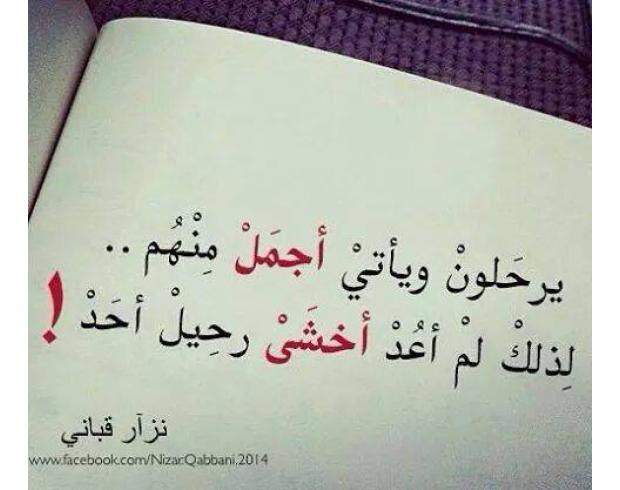 يرحَلونْ ويأتيْ أجمَلْ مِنْهُم ..
لِذلكْ لمْ أعُدْ أخشَىْ رحِيلْ أحَدْ !
نزآر قباني
www.facebook.com/Nizar.Qabbani.2014